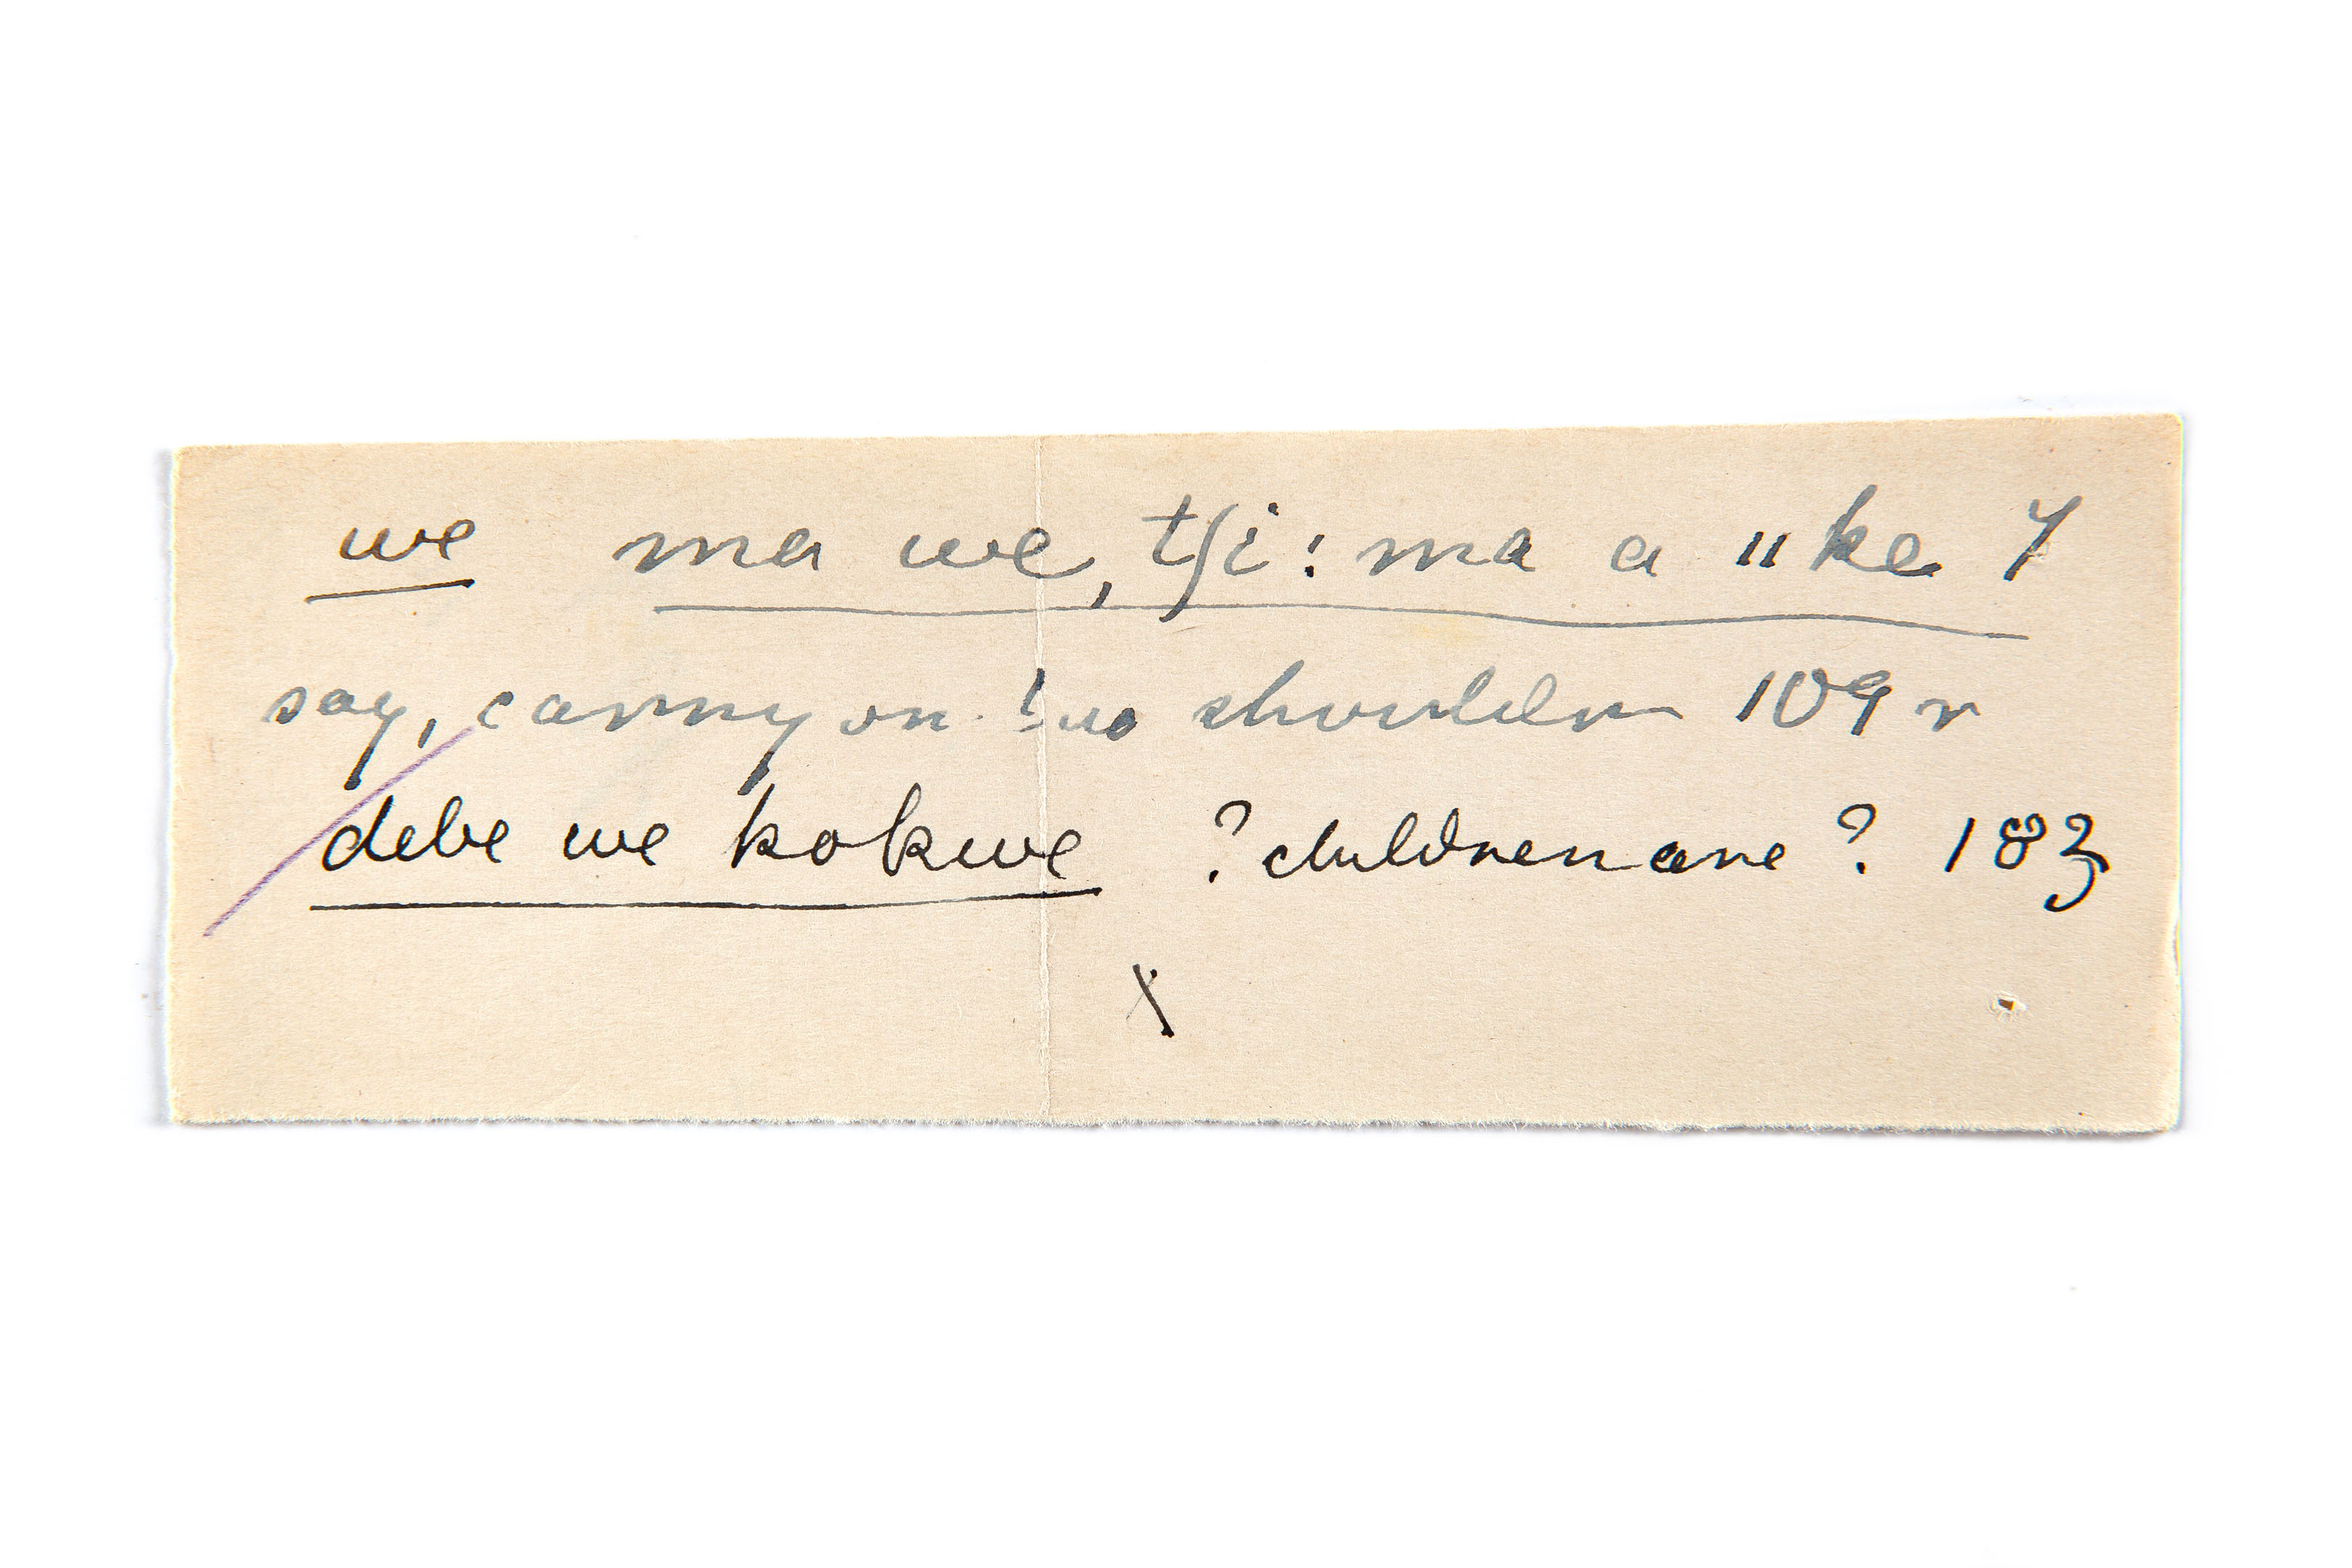 we ma we, tʃi: ma a ııke Y
say, carry on! no shoulder 109 r
debe we kokwe ? children are ? 183
X